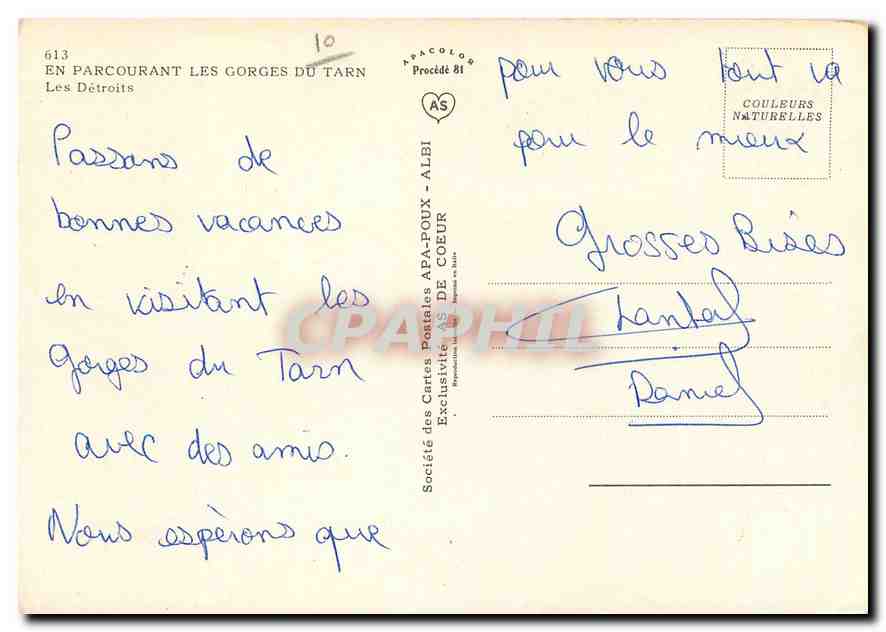 613
EN PARCOURANT LES GORGES DU TARN
Les Détroits
10
Passons de
bonnes vacances
en visitant les
Gorges du Tarn
avec des amis.
Nous espèrons que
APACOLOR
Procédé 81
AS
Société des Cartes Postales APA-POUX - ALBI
Exclusivité AS DE COEUR
Imprimé en Italie
pour vous tout va
pour le mieux
COULEURS
NATURELLES
Grosses Bises
Chantal
Daniel
CPAPHIL